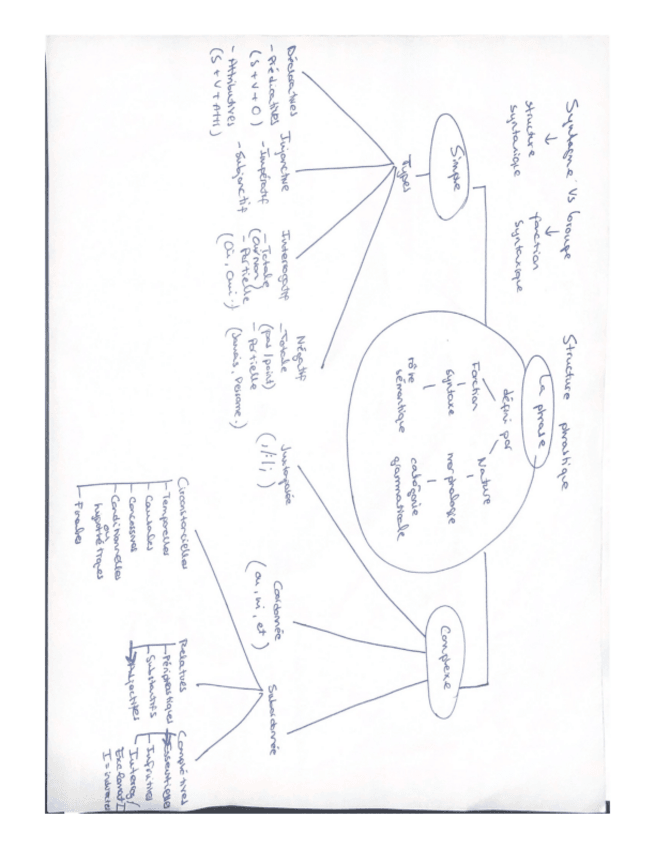 Structure phrastique
Syntagme Vs Groupe
↓ ↓
structure fonction
syntaxique syntaxique
La phrase
défini par
Fonction Nature
syntaxe morphologie
rôle catégorie
sémantique grammaticale
Simple
Types
Déclaratives
- Prédicatives
(S + V + O)
- Attributives
(S + V + Att)
Injonctive
- Impératif
- Subjonctif
Interrogatif
- Totale
(oui/non)
- Partielle
(où, qui..)
Négatif
- Totale
(pas/point)
- Partielle
(Jamais, Personne.)
Complexe
Juxtaposée
(,/:/;)
Coordonnée
(ou, ni, et)
Subordonnée
Circonstancielles
Temporelles
Causales
Concessives
Conditionnelles
ou
hypothétiques
Finales
Relatives
Périphrastiques
Substantifs
Adjectives
Complétives
Essentielle
Infinitives
Interrog/
Exclamat I
I = indirectes